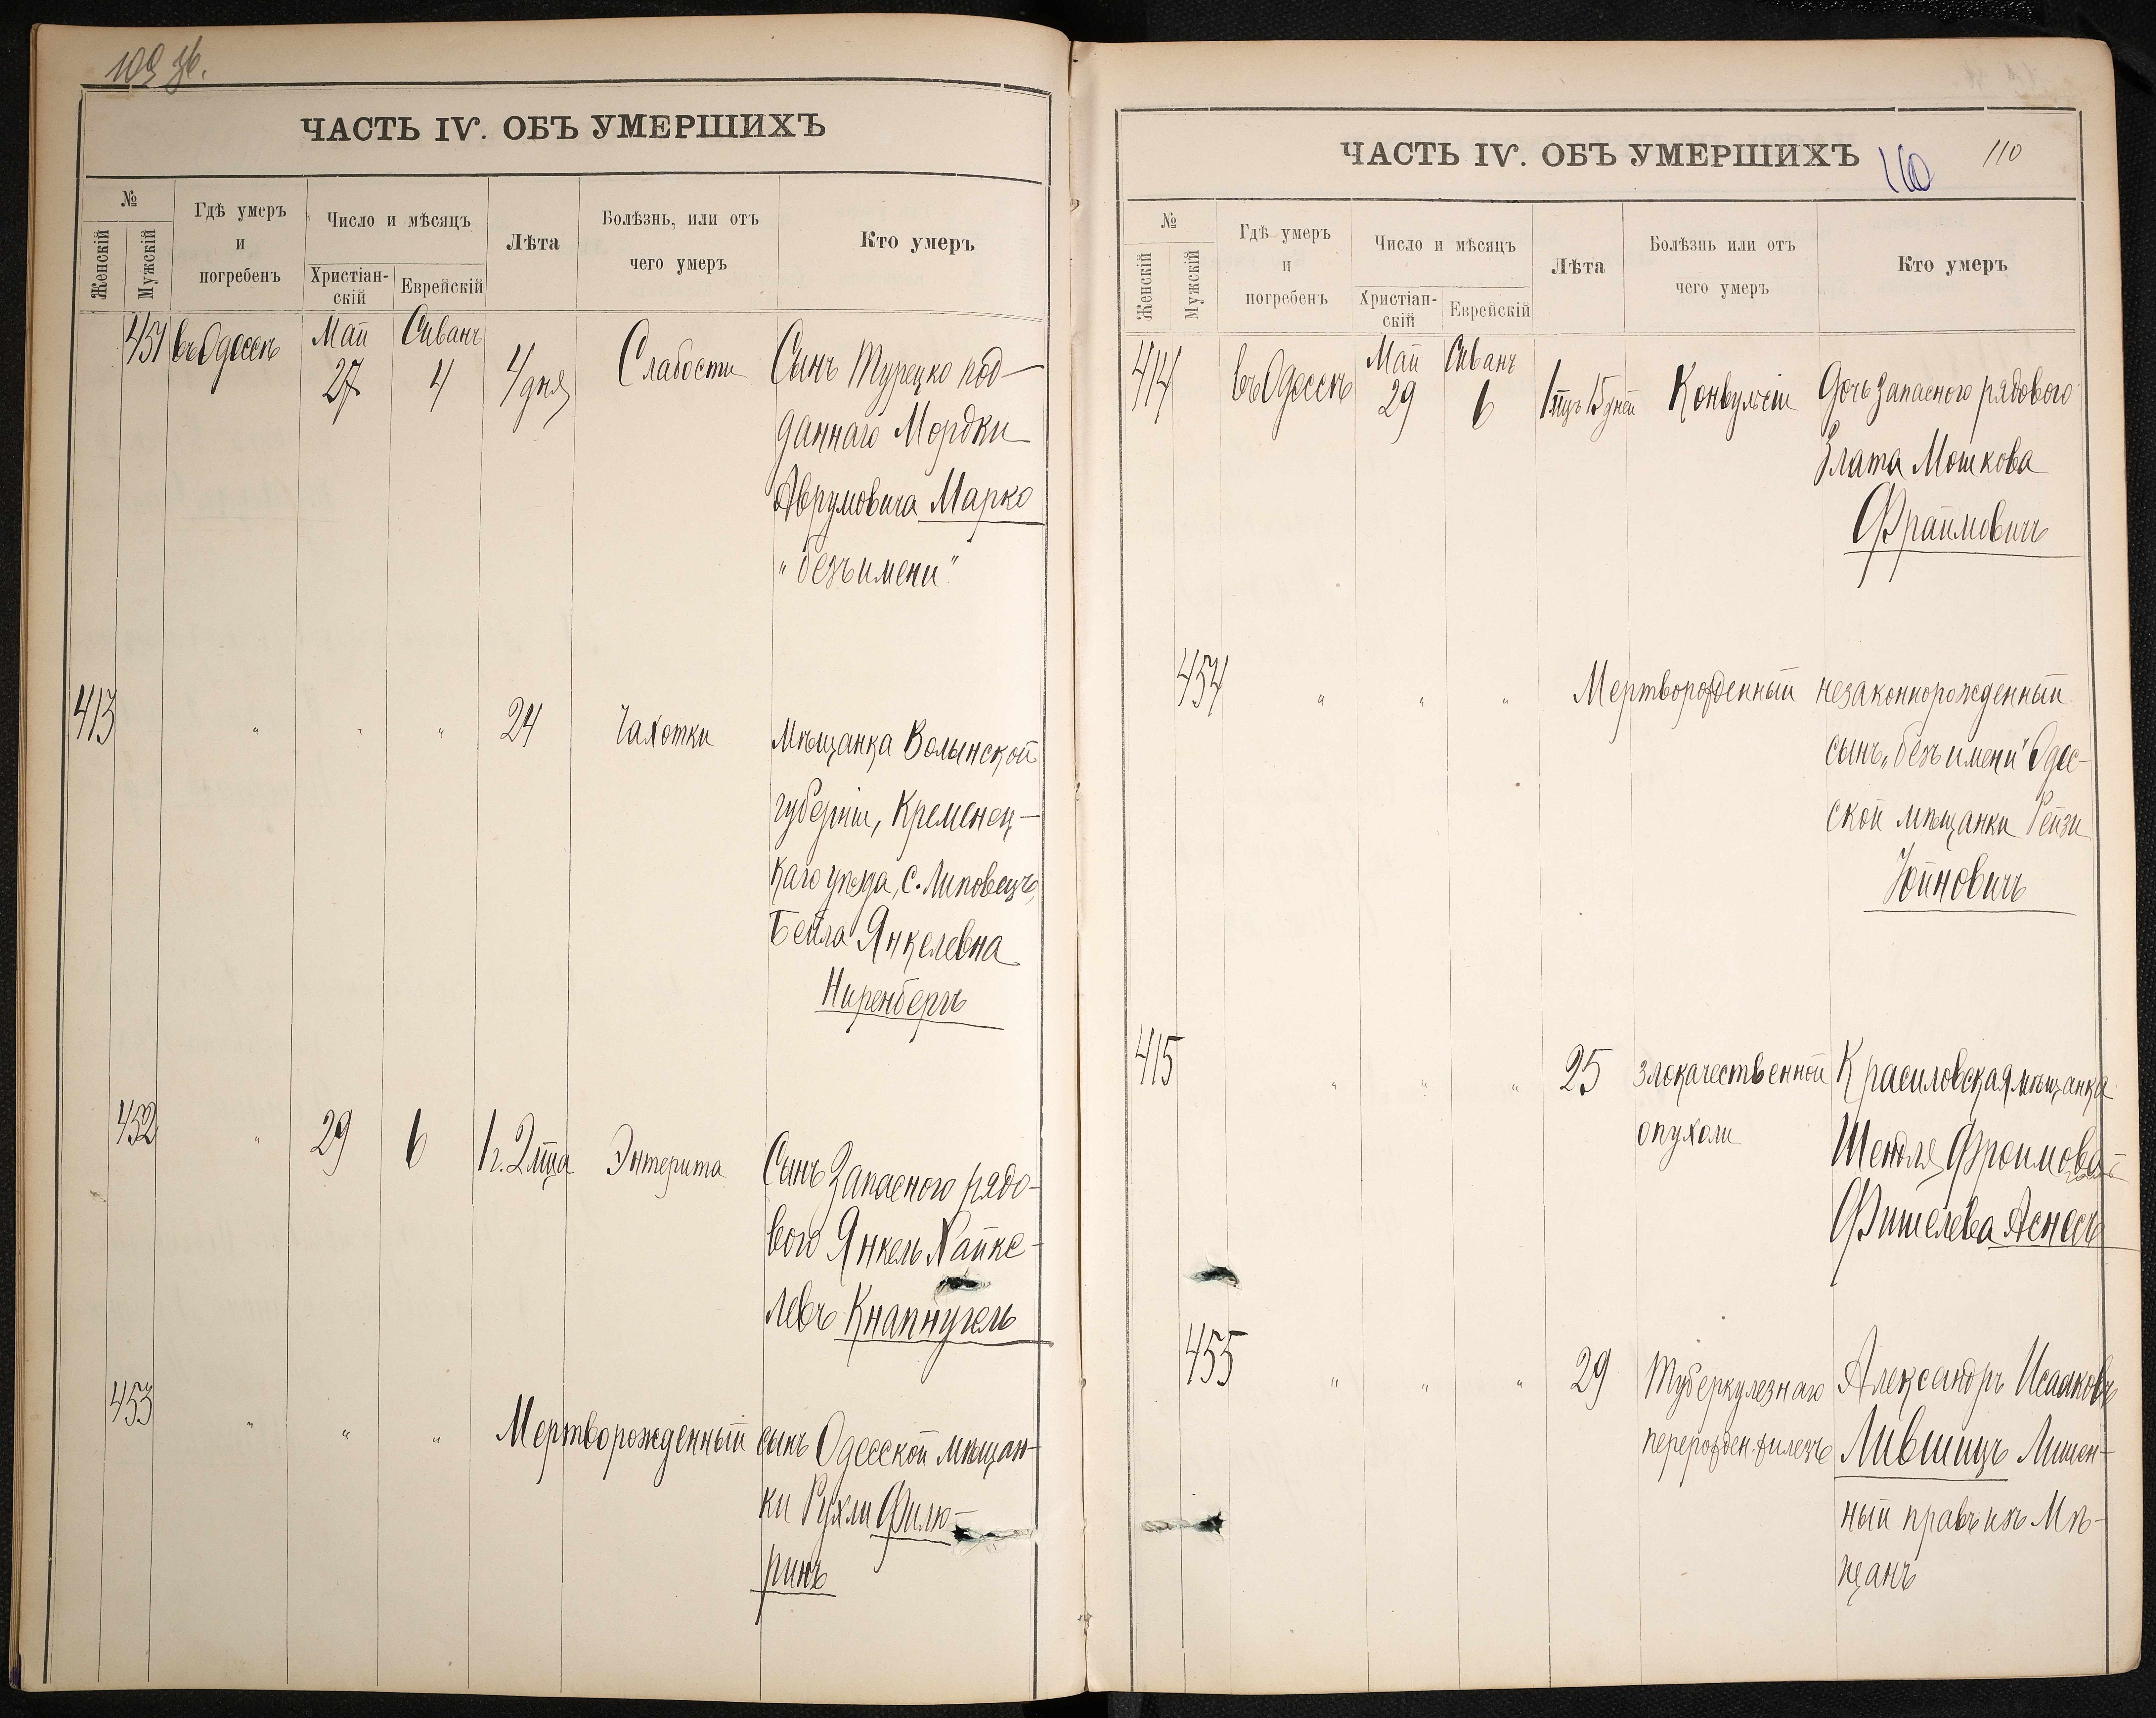 109 об.
ЧАСТЬ IV. ОБЪ УМЕРШИХЪ
№
Женскій
Мужскій
Гдѣ умеръ
и
погребенъ
Число и мѣсяцъ
Христіан-
скій
Еврейскій
Лѣта
Болѣзнь, или отъ
чего умеръ
Кто умеръ
451 въ Одессѣ Май 27 Сиванъ 4 4 дня Слабости Сынъ Турецко под-
даннаго Мордки
Аврумовича Марко
„безъ имени"
413 " " " 24 Чахотки Мѣщанка Волынской
губерніи, Кременец-
каго уѣзда, с. Липовецъ,
Бейла Янкелевна
Ниренбергъ
452 " 29 6 1 г. 2 мца Энтерита Сынъ Запасного рядо-
вого Янкель Хайке-
левъ Кнапнугель
453 " " " Мертворожденный сынъ Одесской мѣщан-
ки Рухли Филю-
ринъ
ЧАСТЬ IV. ОБЪ УМЕРШИХЪ
110
110
№
Женскій
Мужскій
Гдѣ умеръ
и
погребенъ
Число и мѣсяцъ
Христіан-
скій
Еврейскій
Лѣта
Болѣзнь или отъ
чего умеръ
Кто умеръ
414 въ Одессѣ Май 29 Сиванъ 6 1 мцъ 15 дней Конвульсіи Дочь запасного рядового
Злата Мошкова
Фраймовичъ
454 " " " Мертворожденный незаконнорожденный
сынъ „безъ имени" Одес-
ской мѣщанки Рейзи
Юйновичъ
415 " " " 25 злокачественной Красиловская мѣщанка
опухоли Шендля Фроимова
Фишелева Аснесъ
455 " " " 29 Туберкулезнаго Александръ Исааковъ
перерожден. железъ Лившицъ Лишен-
ный правъ изъ Мѣ-
щанъ